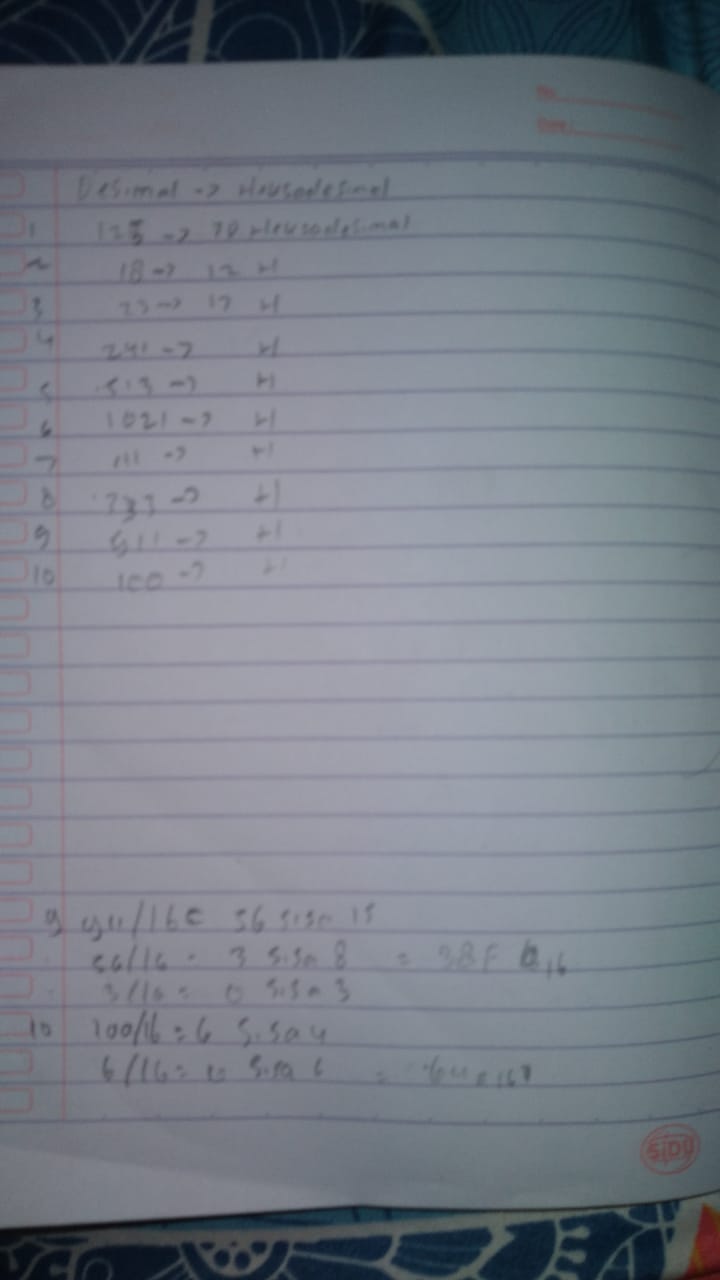 No
Date
Desimal -> Hexsadesimal
1 125 -> 7D Hexsadesimal
2 18 -> 12 H
3 23 -> 17 H
4 241 -> H
5 513 -> H
6 1021 -> H
7 111 -> H
8 -> H
9 911 -> H
10 100 -> H
9 911/16 = 56 sisa 15
56/16 = 3 sisa 8 = 38F 16
3/16 = 0 sisa 3
10 100/16 = 6 sisa 4
6/16 = 0 sisa 6 = 64
SiDU